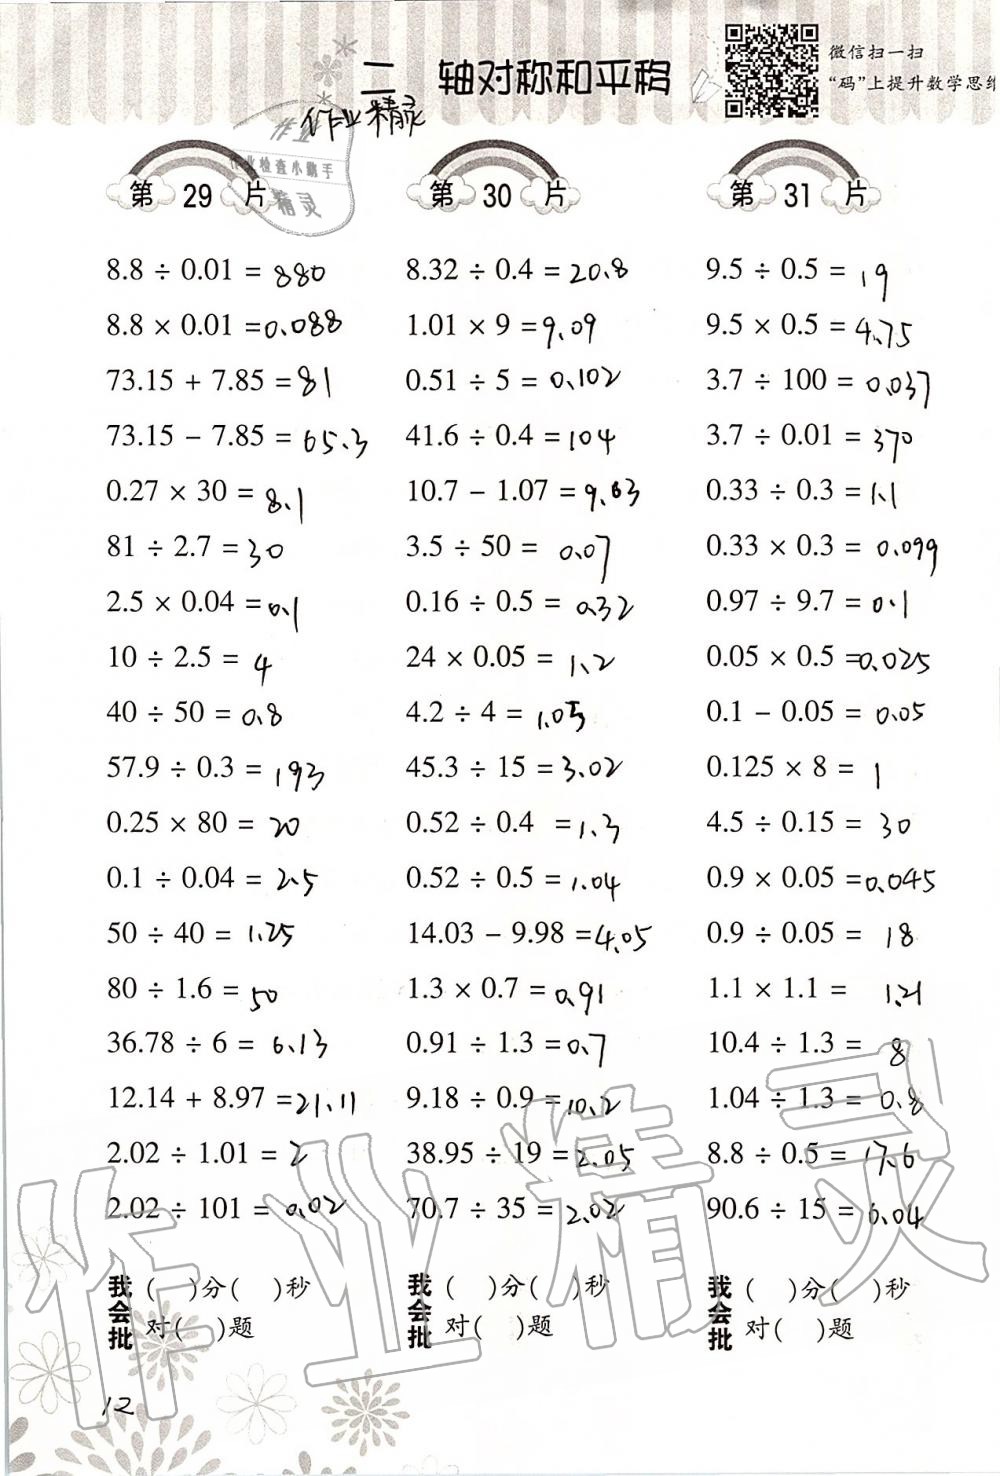 二 轴对称和平移
微信扫一扫
“码”上提升数学思维
作业精灵
作业
作业检查小助手
精灵
第 29 片
8.8 ÷ 0.01 = 880
8.8 × 0.01 = 0.088
73.15 + 7.85 = 81
73.15 - 7.85 = 65.3
0.27 × 30 = 8.1
81 ÷ 2.7 = 30
2.5 × 0.04 = 0.1
10 ÷ 2.5 = 4
40 ÷ 50 = 0.8
57.9 ÷ 0.3 = 193
0.25 × 80 = 20
0.1 ÷ 0.04 = 2.5
50 ÷ 40 = 1.25
80 ÷ 1.6 = 50
36.78 ÷ 6 = 6.13
12.14 + 8.97 = 21.11
2.02 ÷ 1.01 = 2
2.02 ÷ 101 = 0.02
我会批
( )分( )秒
对( )题
第 30 片
8.32 ÷ 0.4 = 20.8
1.01 × 9 = 9.09
0.51 ÷ 5 = 0.102
41.6 ÷ 0.4 = 104
10.7 - 1.07 = 9.63
3.5 ÷ 50 = 0.07
0.16 ÷ 0.5 = 0.32
24 × 0.05 = 1.2
4.2 ÷ 4 = 1.05
45.3 ÷ 15 = 3.02
0.52 ÷ 0.4 = 1.3
0.52 ÷ 0.5 = 1.04
14.03 - 9.98 = 4.05
1.3 × 0.7 = 0.91
0.91 ÷ 1.3 = 0.7
9.18 ÷ 0.9 = 10.2
38.95 ÷ 19 = 2.05
70.7 ÷ 35 = 2.02
我会批
( )分( )秒
对( )题
第 31 片
9.5 ÷ 0.5 = 19
9.5 × 0.5 = 4.75
3.7 ÷ 100 = 0.037
3.7 ÷ 0.01 = 370
0.33 ÷ 0.3 = 1.1
0.33 × 0.3 = 0.099
0.97 ÷ 9.7 = 0.1
0.05 × 0.5 = 0.025
0.1 - 0.05 = 0.05
0.125 × 8 = 1
4.5 ÷ 0.15 = 30
0.9 × 0.05 = 0.045
0.9 ÷ 0.05 = 18
1.1 × 1.1 = 1.21
10.4 ÷ 1.3 = 8
1.04 ÷ 1.3 = 0.8
8.8 ÷ 0.5 = 17.6
90.6 ÷ 15 = 6.04
我会批
( )分( )秒
对( )题
作业精灵
12